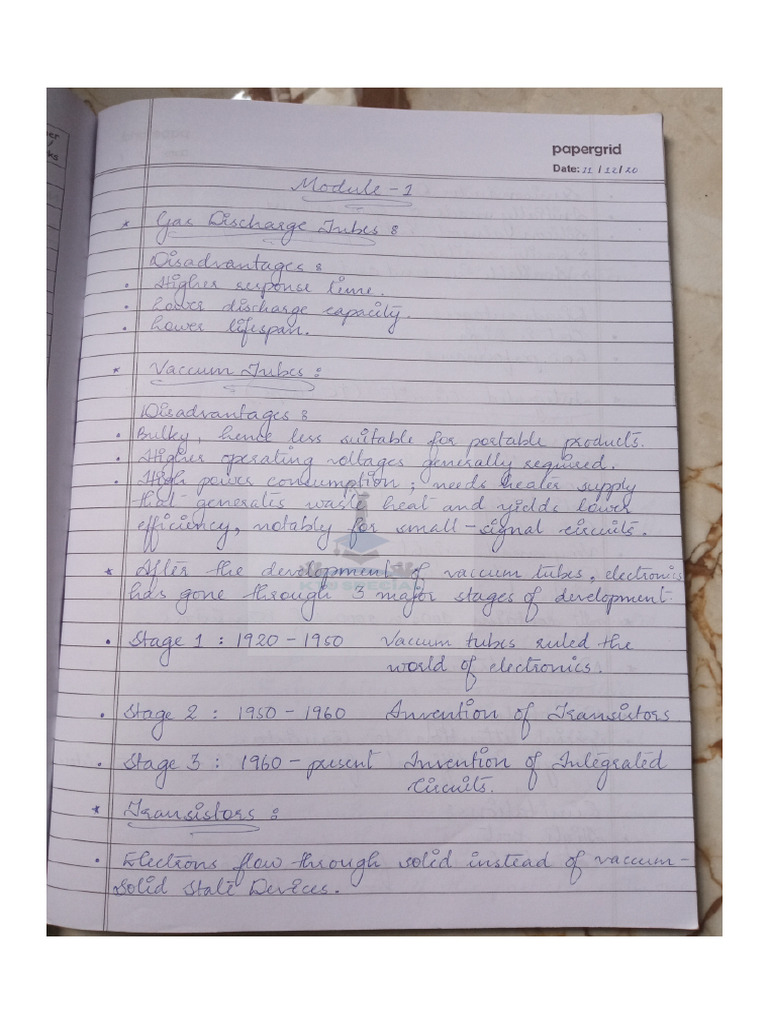 papergrid
Date: 11 / 12 / 20
Module - 1
* Gas Discharge Tubes :
Disadvantages :
• Higher response time.
• Lower discharge capacity.
• Lower lifespan.
* Vaccum Tubes :
Disadvantages :
• Bulky, hence less suitable for portable products.
• Higher operating voltages generally required.
• High power consumption; needs heater supply
that generates waste heat and yields lower
efficiency, notably for small-signal circuits.
* After the development of vaccum tubes, electronics
has gone through 3 major stages of development.
• Stage 1 : 1920 - 1950 Vaccum tubes ruled the
world of electronics.
• Stage 2 : 1950 - 1960 Invention of Transistors
• Stage 3 : 1960 - present Invention of Integrated
Circuits.
* Transistors :
• Electrons flow through solid instead of vaccum -
Solid State Devices.